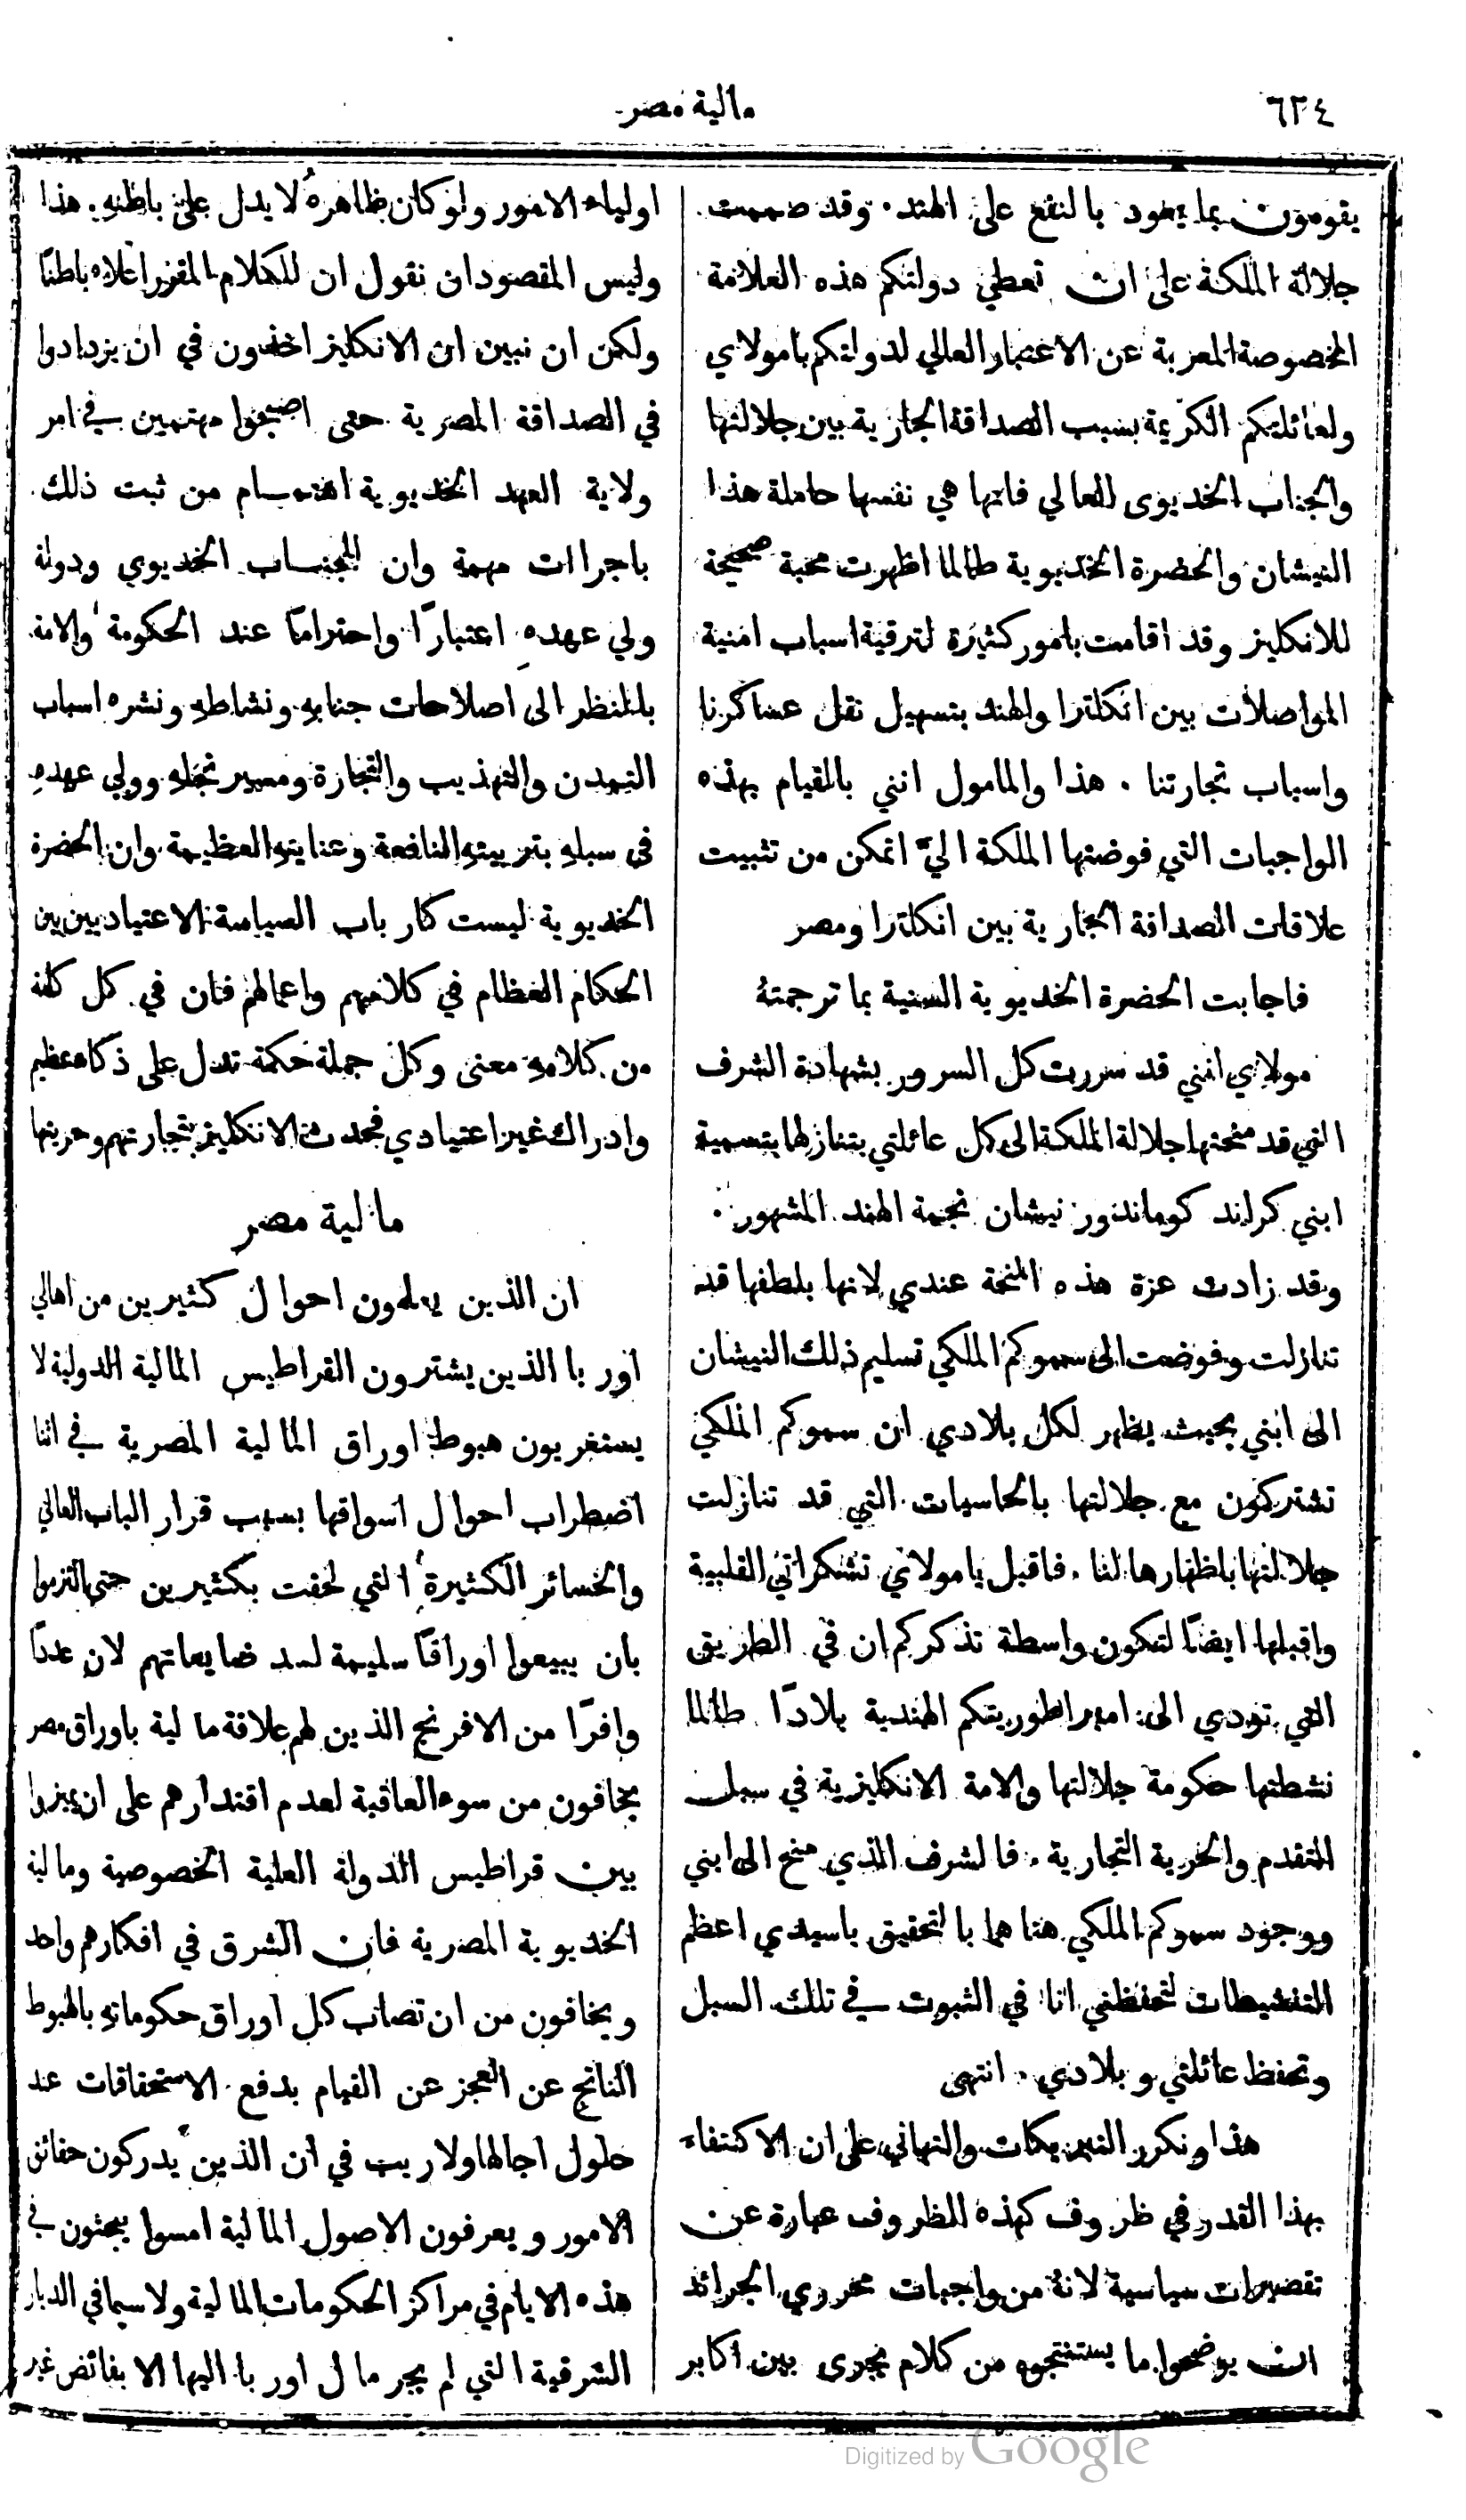 ٦٢٤
مالية مصر
يقومون بما يعود بالنفع على الهند. وقد صممت
جلالة الملكة على ان تعطي دولتكم هذه العلامة
المخصوصة المعربة عن الاعتبار العالي لدولتكم يامولاي
ولعائلتكم الكريمة بسبب الصداقة الجارية بين جلالتها
والجناب الخديوى العالي فانها هي نفسها حاملة هذا
النيشان والحضرة الخديوية طالما اظهرت محبة صحيحة
للانكليز وقد اقامت بامور كثيرة لترقية اسباب امنية
المواصلات بين انكلترا والهند بتسهيل نقل عساكرنا
واسباب تجارتنا. هذا والمامول انني بالقيام بهذه
الواجبات التي فوضتها الملكة اليَّ اتمكن من تثبيت
علاقات الصداقة الجارية بين انكلترا ومصر
فاجابت الحضرة الخديوية السنية بما ترجمتهُ
مولاي انني قد سررت كل السرور بشهادة الشرف
التي قد منحتها جلالة الملكة الى كل عائلتي بتنازلها بتسمية
ابني كراند كوماندور نيشان نجمة الهند المشهور.
وقد زادت عزة هذه المنحة عندي لانها بلطفها قد
تنازلت وفوضت الى سموكم الملكي تسليم ذلك النيشان
الى ابني بحيث يظهر لكل بلادي ان سموكم الملكي
تشتركون مع جلالتها بالحاسيات التي قد تنازلت
جلالتها باظهارها لنا. فاقبل يامولاي تشكراتي القلبية
واقبلها ايضًا لتكون واسطة تذكركم ان في الطريق
التي تودي الى امبراطوريتكم الهندية بلادًا طالما
نشطتها حكومة جلالتها والامة الانكليزية في سبل
التقدم والحرية التجارية. فالشرف الذي منح الى ابني
ووجود سموكم الملكي هنا هما بالتحقيق ياسيدي اعظم
التنشيطات لتحفظني انا في الثبوت في تلك السبل
وتحفظ عائلتي وبلادي. انتهى
هذا ونكرر التبريكات والتهاني على ان الاكتفاء
بهذا القدر في ظروف كهذه الظروف عبارة عن
تقصيرات سياسية لانهُ من واجبات محرري الجرائد
ان يوضحوا ما يستنتجوه من كلام يجرى بين اكابر
اولياء الامور ولو كان ظاهرهُ لا يدل على باطنهِ. هذا
وليس المقصود ان نقول ان للكلام المقرر اعلاه باطنًا
ولكن ان نبين ان الانكليز اخذون في ان يزدادوا
في الصداقة المصرية حتى اصبحوا مهتمين في امر
ولاية العهد الخديوية اهتمام من ثبت ذلك
باجراات مهمة وان للجناب الخديوي ودولة
ولي عهدهِ اعتبارًا واحترامًا عند الحكومة والامة
بالنظر الى اصلاحات جنابهِ ونشاطهِ ونشره اسباب
التمدن والتهذيب والتجارة ومسير نجلهِ وولي عهدهِ
في سبلهِ بتربيتهِ النافعة وعنايتهِ العظيمة وان الحضرة
الخديوية ليست كارباب السياسة الاعتياديين بين
الحكام العظام في كلامهم واعمالهم فان في كل كلمة
من كلامهِ معنى وكل جملة حكمة تدل على ذكاء عظيم
وادراك غير اعتيادي فحمدت الانكليز بتجارتهم وحريتها
مالية مصر
ان الذين يعلمون احوال كثيرين من اهالي
اوربا الذين يشترون القراطيس المالية الدولية لا
يستغربون هبوط اوراق المالية المصرية في اثنا
اضطراب احوال اسواقها بسبب قرار الباب العالي
والخسائر الكثيرة التي لحقت بكثيرين حتى التزموا
بان يبيعوا اوراقًا سليمة لسد ضايعاتهم لان عددًا
وافرًا من الافرنج الذين لهم علاقة مالية باوراق مصر
يخافون من سوء العاقبة لعدم اقتدارهم على ان يميزوا
بين قراطيس الدولة العلية الخصوصية ومالية
الخديوية المصرية فان الشرق في افكارهم واحد
ويخافون من ان تصاب كل اوراق حكوماتهِ بالهبوط
الناتج عن العجز عن القيام بدفع الاستحقاقات عند
حلول اجالها ولا ريب في ان الذين يدركون حقائق
الامور ويعرفون الاصول المالية امسوا يبحثون في
هذه الايام في مراكز الحكومات المالية ولا سيما في الديار
الشرقية التي لم يجر مال اوربا اليها الا بفائض غير
Digitized by Google